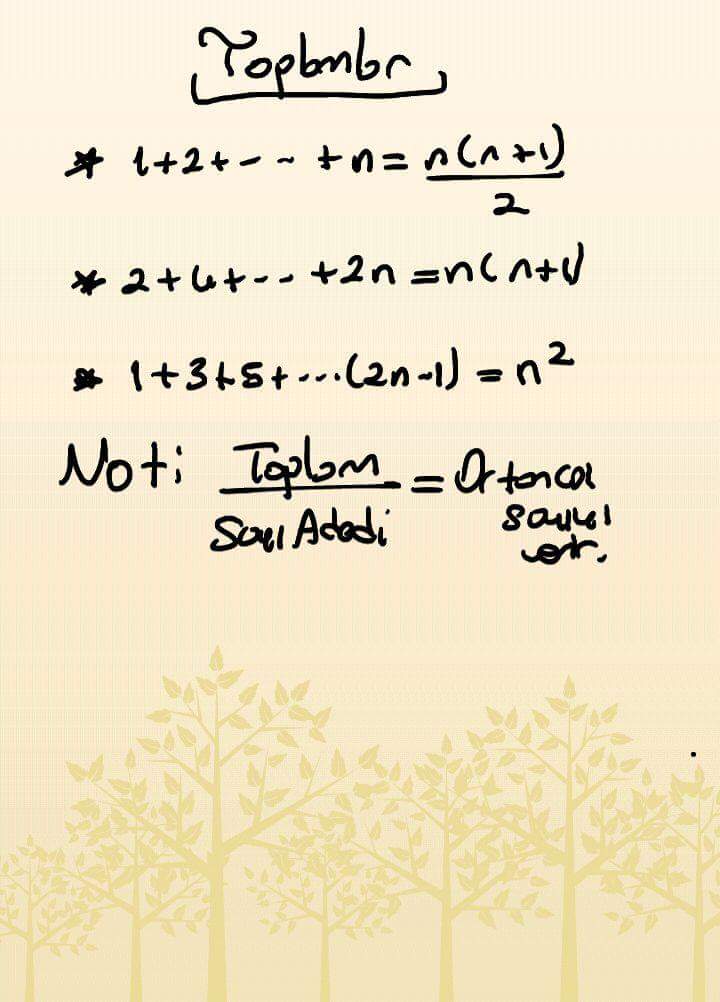 Toplamlar
* 1+2+-- +n= n(n+1)/2
* 2+4+-- +2n =n(n+1)
* 1+3+5+...(2n-1) = n²
Not: Toplam/Sayı Adedi = Ortanca
sayıyı
verir.